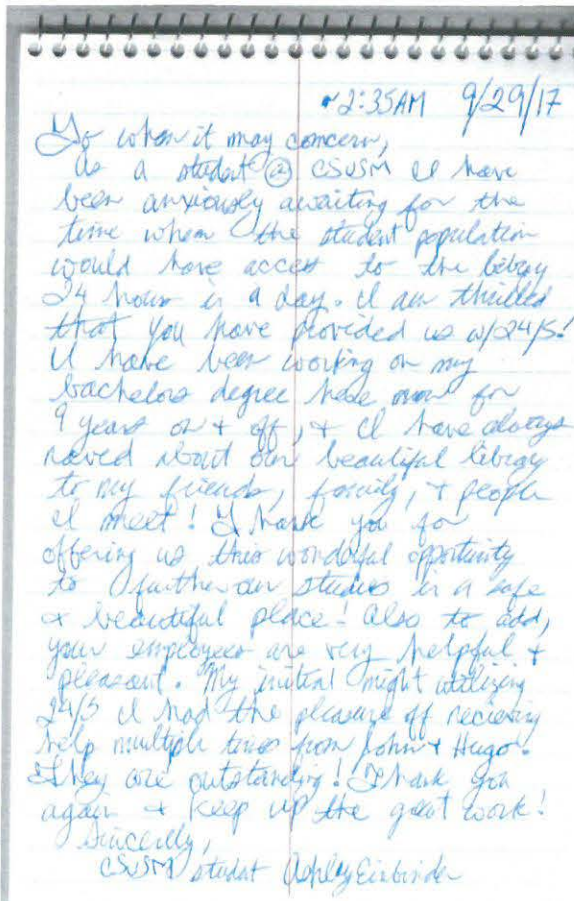 ~2:35AM 9/29/17
To whom it may concern,
as a student @ CSUSM I have
been anxiously awaiting for the
time when the student population
would have access to the library
24 hours in a day. I am thrilled
that you have provided us w/24/5!
I have been working on my
bachelors degree here now for
9 years on + off, + I have always
raved about our beautiful library
to my friends, family, + people
I meet! Thank you for
offering us this wonderful opportunity
to further our studies in a safe
& beautiful place! Also to add,
your employees are very helpful +
pleasant. My initial night utilizing
24/5 I had the pleasure off recieving
help multiple times from John + Hugo.
They are outstanding! Thank you
again + keep up the great work!
Sincerlly,
CSUSM student Ashley Einbinder